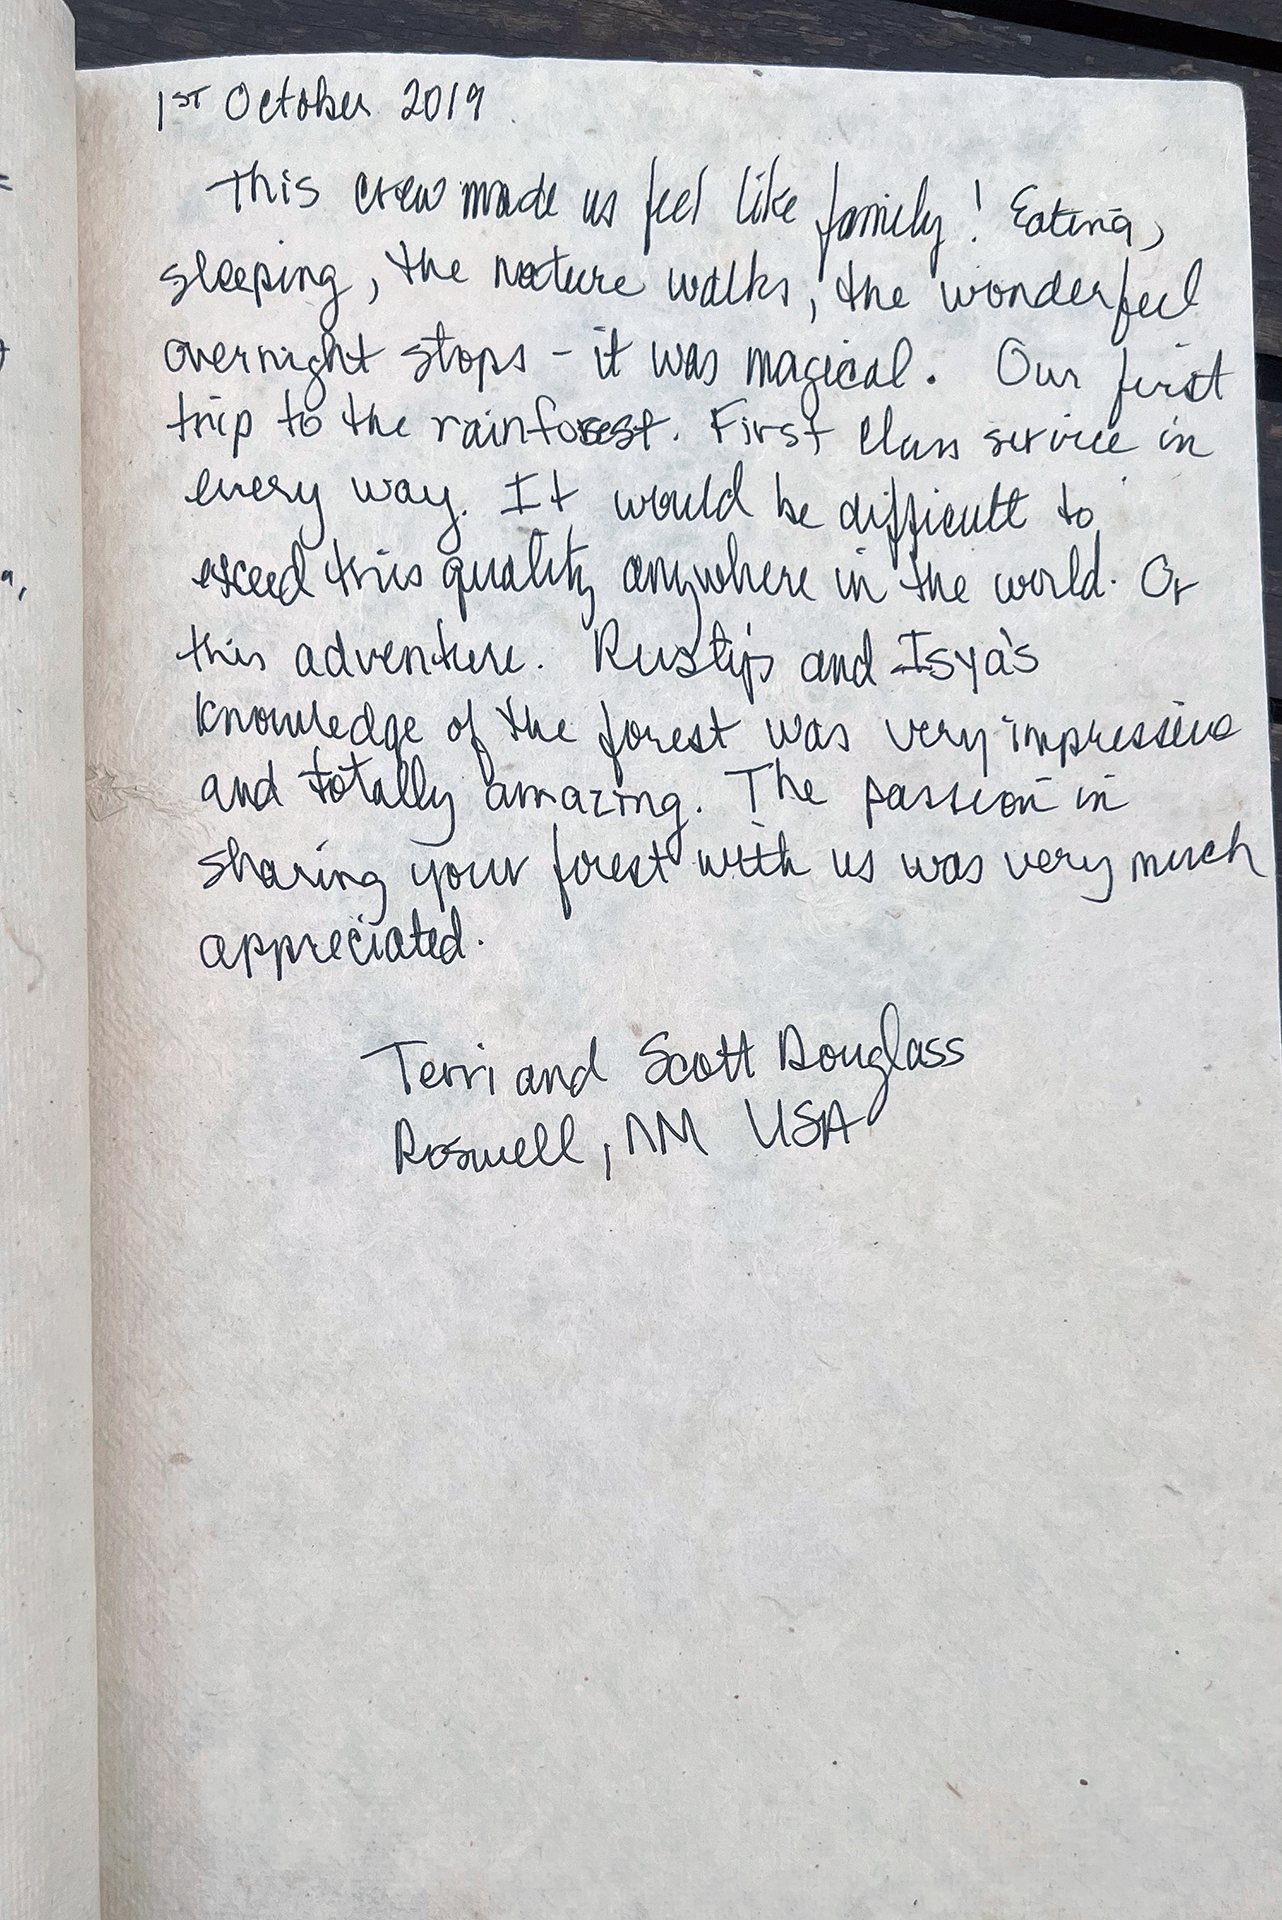 1ST October 2019
This crew made us feel like family! Eating,
sleeping, the nature walks, the wonderful
overnight stops - it was magical. Our first
trip to the rainforest. First class service in
every way. It would be difficult to
exceed this quality anywhere in the world. Or
this adventure. and Isya's
knowledge of the forest was very impressive
and totally amazing. The passion in
sharing your forest with us was very much
appreciated.
Terri and Scott Douglass
Roswell, NM USA